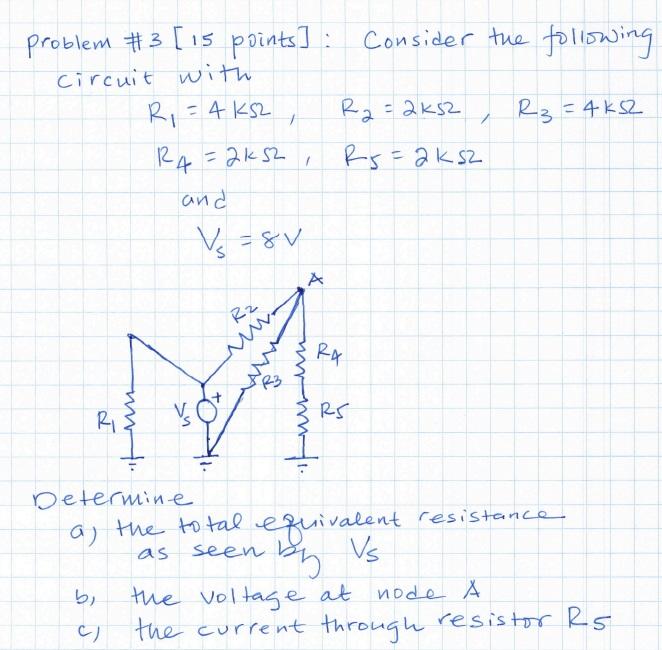 Problem #3 [15 points] : Consider the following
circuit with
R1 = 4 kΩ , R2 = 2kΩ , R3 = 4kΩ
R4 = 2kΩ , R5 = 2kΩ
and
Vs = 8V
A
R2
R4
R3
Vs +
R1
R5
Determine
a) the total equivalent resistance
as seen by Vs
b, the voltage at node A
c) the current through resistor R5